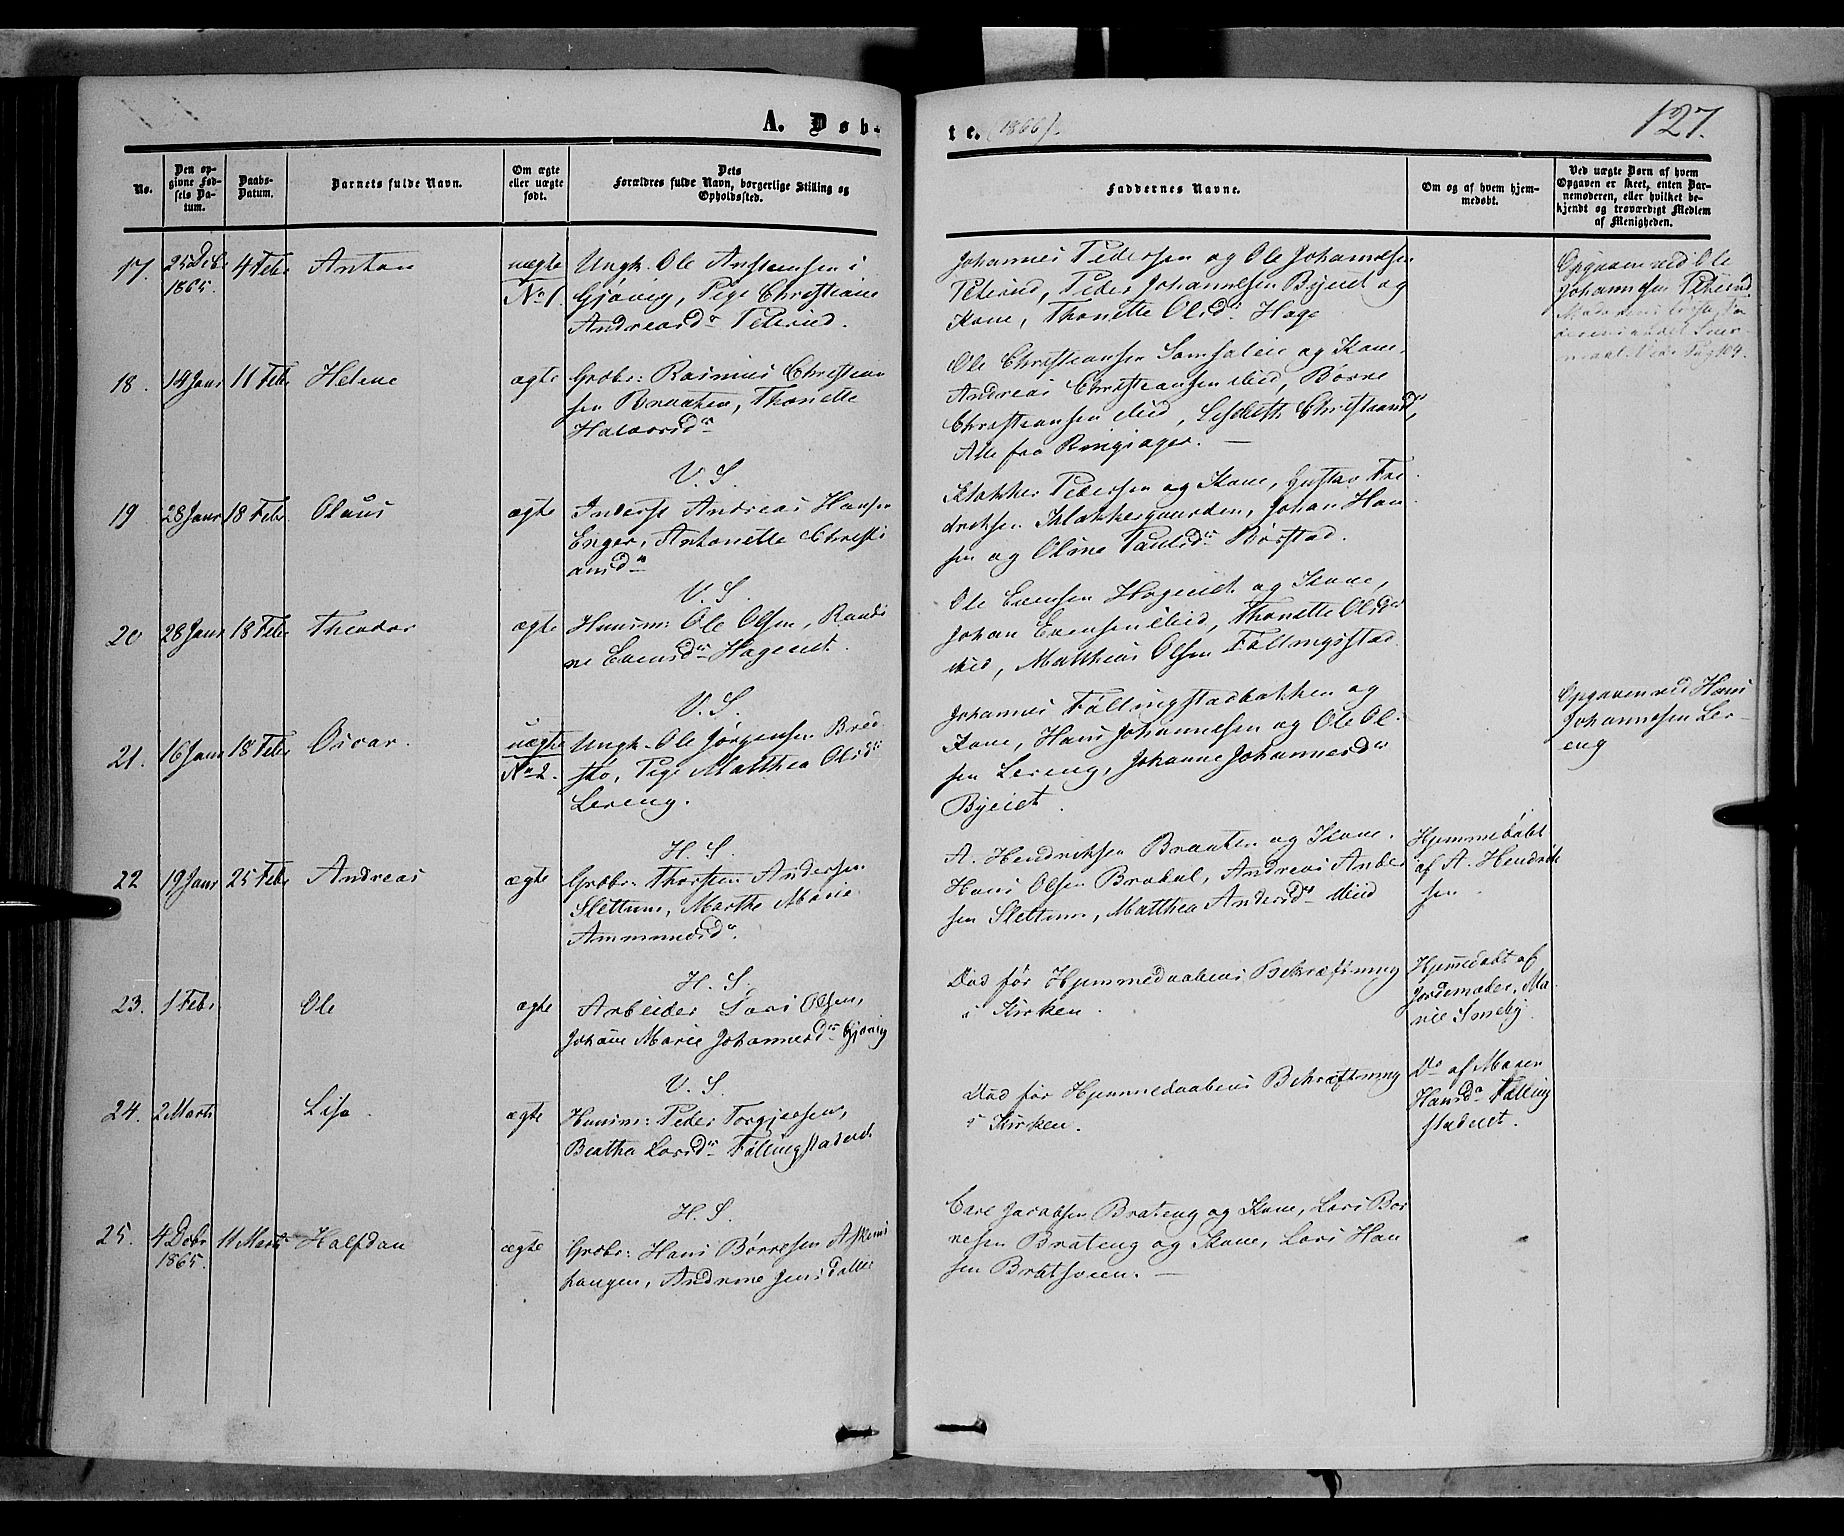 A. Døb-
te. (1866).
127.
No.
Den op-
givne Fød-
sels Da-
tum.
Daabs-
Datum.
Barnets fulde Navn.
Om ægte
eller uægte
født.
Dets
Forældres fulde Navn, borgerlige Stilling og
Opholdssted.
Faddernes Navne.
Om og af hvem hjem-
medøbt.
Ved uægte Børn af hvem
Opgaven er skeet, enten Bar-
nemoderen, eller hvilket be-
kjendt og troværdigt Medlem
af Menigheden.
17.
25 Dcb.
1865.
4 Febr
Anton
uægte
No 1.
Ungk. Ole Anstensen i
Gjøvig, Pige Christiane
Andreasdr Peterud.
Johannes Pedersen og Ole Johannesen
Peterud, Peder Johannesen Byeiet og
Kone, Thonette Olsdr Hage
Opgaven ved Ole
Johannesen Peterud
18.
14 Janr
11 Febr
Helene
ægte
Grdbr: Rasmus Christian
sen Braaten, Thonette
Halvorsdr
Ole Christiansen Samsaleie og Kone,
Andreas Christiansen ibid, Børre
Christiansen ibid, Lisbeth Christiansdr,
Alle fra Ringsager. —
V. S.
19
28 Janr
18 Febr
Olaus
ægte
Inderst Andreas Hansen
Enger, Antonette Christi
ansdr
Klokker Pedersen og Kone, Gustav Fre-
driksen Klokkergaarden, Johan Han
sen og Oline Paulsdr Børstad.
V. S.
20
28 Janr
18 Febr
Theodor
ægte
Huusm: Ole Olsen, Randi
ne Evensdr Hageiet.
Ole Evensen Hageiet og Kone,
Johan Evensen ibid, Thonette Olsdr
ibid, Matthias Olsen Føllingstad
V. S.
21.
16 Janr
18 Febr
Oscar.
uægte
No 2.
Ungk. Ole Jørgensen Bred
sko, Pige Matthea Olsdr
Lereng.
Johannes Føllingstadbakken og
Kone, Hans Johannesen og Ole Ol-
sen Lereng, Johanne Johannesdr
Byeiet.
Opgaven ved Hans
Johannesen Ler-
eng
H. S.
22
19 Janr
25 Febr
Andreas
ægte
Grdbr: Thorsten Andersen
Slettum, Marthe Marie
Ammundsdr.
A. Hendriksen Braaten og Kone.
Hans Olsen Brakal, Andreas Ander
sen Slettum, Matthea Andersdr ibid
Hjemmedøbt
af A. Hendrik
sen.
H. S.
23.
1 Febr
Ole
ægte
Arbeider Lars Olsen,
Johane Marie Johannesdr Gjøvig
Død før Hjemmedaabens Bekræftning
i Kirken.
Hjemedøbt af
Jordemoder, Ma-
rie Smeby.
V. S.
24.
2 Marts
Lise.
ægte
Huusm: Peder Torgjersen,
Beathe Larsdr Føllingstadeiet
Død før Hjemmedaabens Bekræftning
i Kirken.
Do af Maren
Hansdr Følling
stadeiet.
H. S.
25.
4 Dcbr
1865.
11 Marts
Halfdan
ægte
Grdbr: Hans Børresen Askim
haugen, Andrine Jensdatter
Carl Jacobsen Brateng og Kone, Lars Bør
resen Brateng og Kone, Lars Han
sen Bratsveen. —